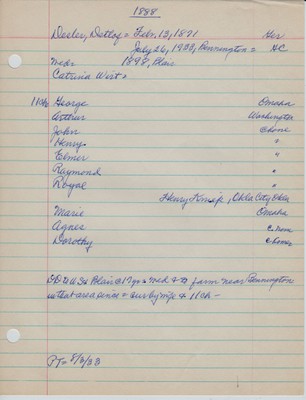 1898
Deeler, Detlof = Feb. 13, 1871 Ger
July 26, 1933, Bennington = HC
Neds 1898, Blair
Catrina Wist =
11 Ch George Omaha
Arthur Washington
John @ home
Henry "
Elmer "
Raymond "
Royal
Henry Knaje, Okla City Okla
Marie Omaha
Agnes @ home
Dorothy @ home
DD to US Blair @ 17 yrs = Med & to farm near Bennington
in that area since = Sur by wife & 11 ch -
PT = 8/3/33